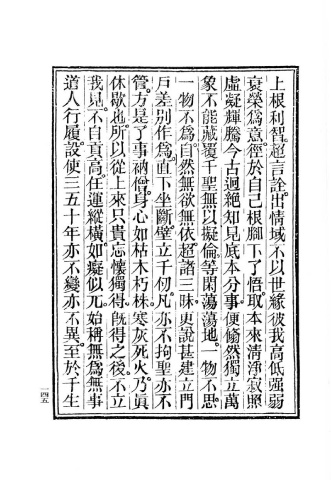 上根利智。超言詮出情域。不以世緣彼我高低强弱
衰榮爲意。徑於自己根腳下了悟。取本來清淨寂照
虛凝輝騰今古迥絕知見底本分事。便翛然獨立。萬
象不能藏覆。千聖無以擬倫。等閑蕩蕩地。一物不思。
一物不爲。自然無欲無依。超諸三昧。更說甚建立門
戶差別作爲。直下坐斷。壁立千仞。凡亦不拘。聖亦不
管。方是了事衲僧。身心如枯木朽株寒灰死火。乃眞
休歇也。所以從上來只貴忘懷獨得。旣得之後。不立
我見。不自貢高。任運縱橫。如癡似兀。始稱無爲無事
道人行履。設使三五十年。亦不變亦不異。至於千生
一四五